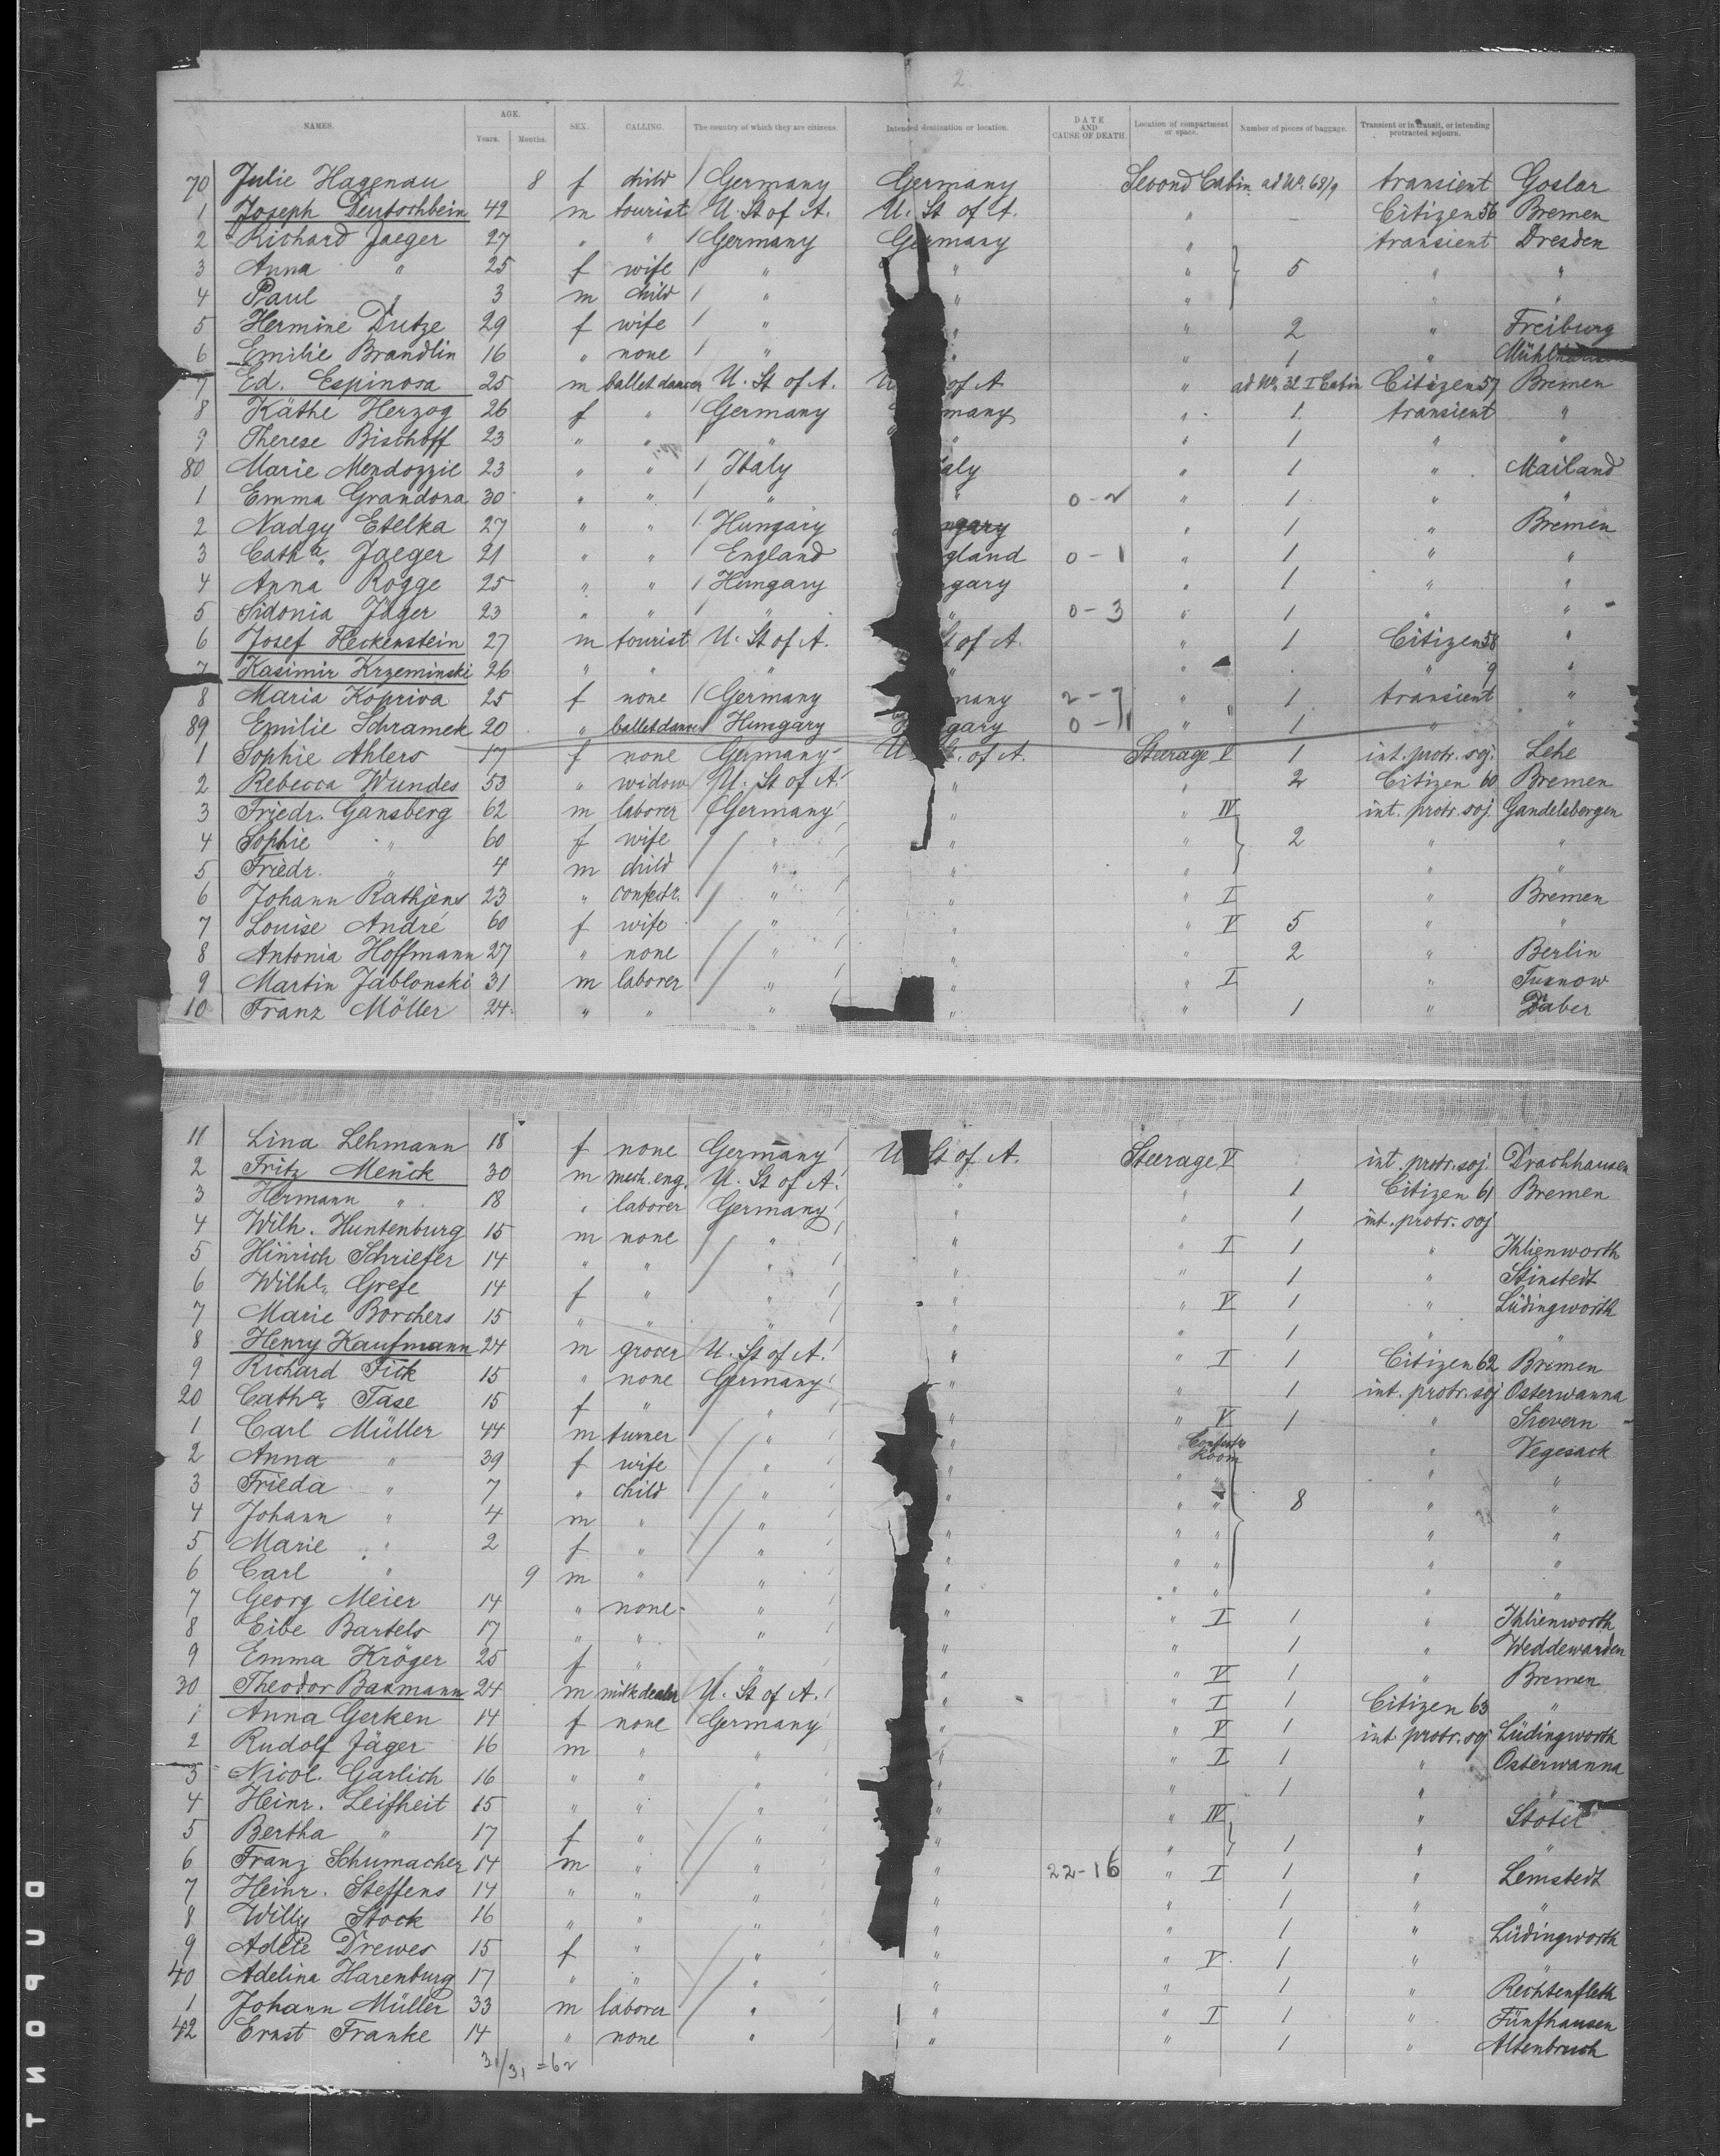 2
NAMES. AGE. Years. Months. SEX. CALLING. The country of which they are citizens. Intended destination or location. DATE AND CAUSE OF DEATH. Location of compartment or space. Number of pieces of baggage. Transient or in transit, or intending protracted sojourn.
70 Julie Hagenau 8 f child / Germany Germany Second Cabin ad No. 68/9 transient Goslar
1 Joseph Deutschbein 42 m tourist U. St of A. U. St of A. " - Citizen 56 Bremen
2 Richard Jaeger 27 " " / Germany Germany " transient Dresden
3 Anna " 25 f wife / " " " 5 " "
4 Paul " 3 m child / " " " " "
5 Hermine Dutze 29 f wife / " " " 2 " Freiburg
6 Emilie Brandlin 16 " none / " " " 1 "
7 Ed. Espinosa 25 m ballet dancer U. St of A. U of A " ad No. 32 I Cabin Citizen 57 Bremen
8 Käthe Herzog 26 f " / Germany many " 1 transient "
9 Therese Bischoff 23 " " / " " " 1 " "
80 Marie Mendozzie 23 " " / Italy aly " 1 " Mailand
1 Emma Grandona 30 " " / " " 0-2 " 1 " "
2 Nadgy Etelka 27 " " / Hungary ngary " 1 " Bremen
3 Catha. Jaeger 21 " " / England gland 0-1 " 1 " "
4 Anna Rogge 25 " " / Hungary gary " 1 " "
5 Sidonia Jäger 23 " " / " " 0-3 " 1 " "
6 Josef Heckenstein 27 m tourist U. St of A. t of A. " 1 Citizen 58 "
7 Kasimir Krzeminski 26 " " " " " . " 9 "
8 Maria Kopriva 25 f none / Germany many 2-7 " 1 transient "
89 Emilie Schramek 20 " ballet dancer / Hungary gary 0-11 " 1 " "
1 Sophie Ahlers 17 f none Germany U. of A. Steerage V 1 int. protr. soj. Lehe
2 Rebecca Wundes 53 " widow U. St of A. " " 2 Citizen 60 Bremen
3 Friedr. Gansberg 62 m laborer Germany " " IV int. protr. soj. Gandelsbergen
4 Sophie " 60 f wife " " " 2 " "
5 Friedr. " 4 m child " " " " "
6 Johann Rathjens 23 " confectr. " " " I " Bremen
7 Louise André 60 f wife " " " V 5 " "
8 Antonia Hoffmann 27 " none " " " 2 " Berlin
9 Martin Jablonski 31 m laborer " " " I " Tusnow
10 Franz Möller 24 " " " " " 1 " Daber
11 Lina Lehmann 18 f none Germany U. St of A. Steerage V int. protr. soj. Drachhausen
2 Fritz Menck 30 m mech. eng. U. St of A. " " 1 Citizen 61 Bremen
3 Hermann " 18 " laborer Germany " " 1 int. protr. soj
4 Wilh. Huntenburg 15 m none " " " I 1 " Ihlienworth
5 Hinrich Schriefer 14 " " " " " 1 " Stinstedt
6 Wilhe. Grefe 14 f " " " " V 1 " Lüdingworth
7 Marie Borchers 15 " " " " " 1 " "
8 Henry Kaufmann 24 m grocer U. St of A. " " I 1 Citizen 62 Bremen
9 Richard Fick 15 " none Germany " " 1 int. protr. soj Osterwanna
20 Catha. Tase 15 f " " " " V 1 " Sievern
1 Carl Müller 44 m turner " " Confectr Room " Vegesack
2 Anna " 39 f wife " " " " " "
3 Frieda " 7 " child " " " " 8 " "
4 Johann " 4 m " " " " " " "
5 Marie " 2 f " " " " " " "
6 Carl " 9 m " " " " " " "
7 Georg Meier 14 " none " " " I 1 " Ihlienworth
8 Eibe Bartels 17 " " " " " 1 " Weddewarden
9 Emma Kröger 25 f " " " " V 1 " Bremen
30 Theodor Basmann 24 m milkdealer U. St of A. " " I 1 Citizen 63 "
1 Anna Gerken 14 f none Germany " " V 1 int protr. soj Lüdingworth
2 Rudolf Jäger 16 m " " " " I 1 " Osterwanna
3 Nicol. Garlich 16 " " " " " 1 " "
4 Heinr. Leifheit 15 " " " " " IV " Stotel
5 Bertha " 17 f " " " " 1 " "
6 Franz Schumacher 14 m " " " 22-16 " I 1 " Lemstedt
7 Heinr. Steffens 14 " " " " " 1 " "
8 Willy Stock 16 " " " " " 1 " Lüdingworth
9 Adele Drewes 15 f " " " " V 1 " "
40 Adelina Harenburg 17 " " " " " 1 " Rechtenfleth
1 Johann Müller 33 m laborer " " " I 1 " Fünfhausen
42 Ernst Franke 14 " none " " " 1 " Altenbruch
31/31 = 62
DUPONT